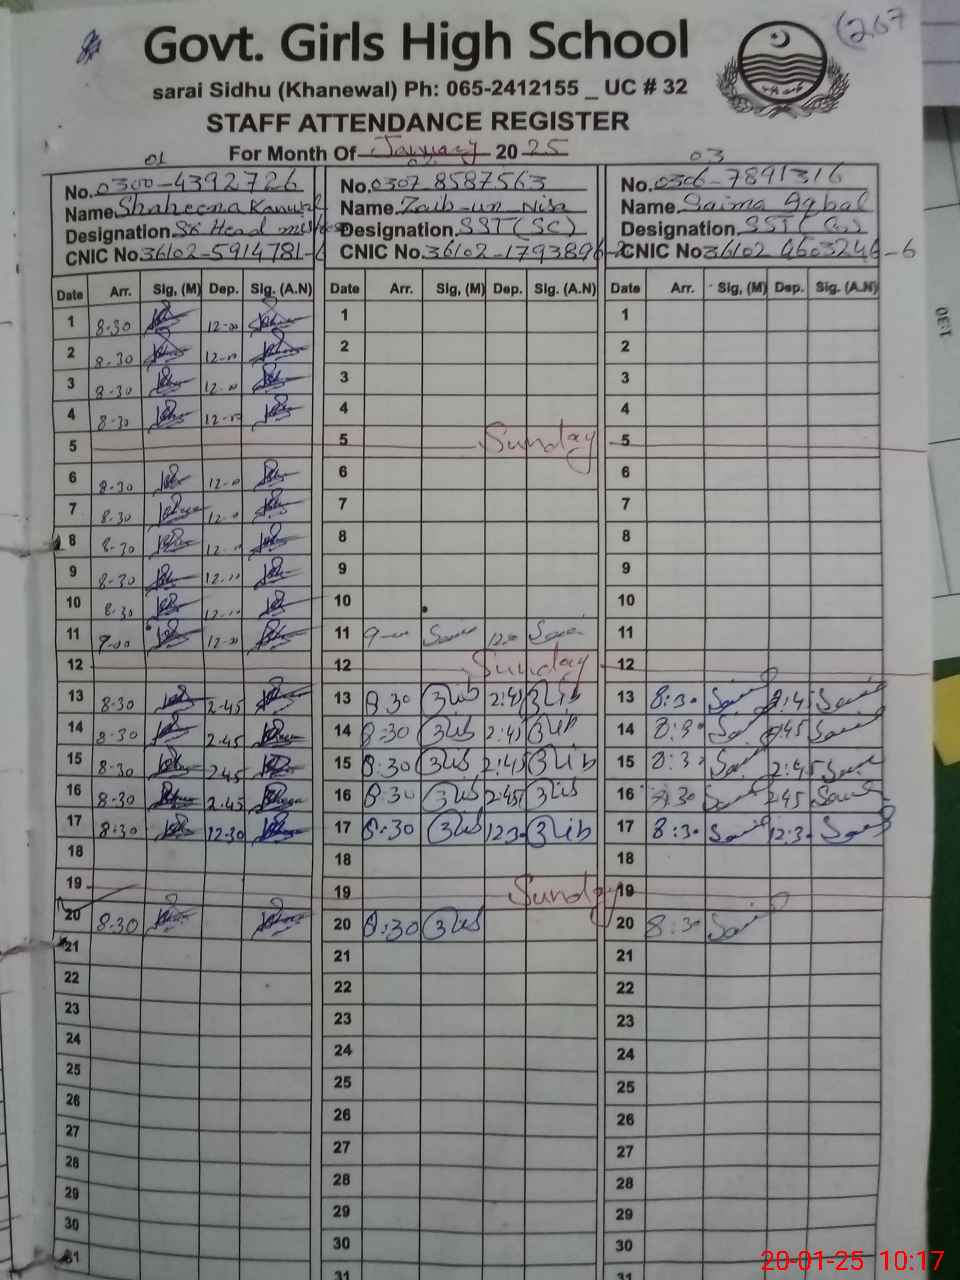 (267
Govt. Girls High School
sarai Sidhu (Khanewal) Ph: 065-2412155 _ UC # 32
STAFF ATTENDANCE REGISTER
For Month Of January 2025
01 03
No. 0300-4392726 No. 0307-8587563 No. 0306-7891316
Name Shaheena Kanwal Name Zaib-un-Nisa Name Saima Iqbal
Designation Sr Head mistress Designation SST (SC) Designation SST
CNIC No 36102-5914781-6 CNIC No. 36102-1793896-2 CNIC No 36102 9603246-6
Date Arr. Sig, (M) Dep. Sig. (A.N) Date Arr. Sig, (M) Dep. Sig. (A.N) Date Arr. Sig, (M) Dep. Sig. (A.N)
1 8-30 12-00 1 1
2 8-30 12-00 2 2
3 8-30 12-00 3 3
4 8-30 12-00 4 4
5 5 Sunday 5
6 8-30 12-00 6 6
7 8-30 12-00 7 7
8 8-30 12-00 8 8
9 8-30 12-00 9 9
10 8-30 12-00 10 10
11 9-00 12-00 11 9-00 11
12 12 Sunday 12
13 8-30 2-45 13 8:30 2:45 13 8:30 2:45
14 8-30 2.45 14 8:30 2:45 14 8:30 2:45
15 8-30 2.45 15 8:30 2:45 15 8:30 2:45
16 8-30 2.45 16 8:30 2:45 16 8:30 2:45
17 8:30 12:30 17 8:30 12:30 17 8:30 12:30
18 18 18
19 19 Sunday 19
20 8-30 20 8:30 20 8:30
21 21 21
22 22 22
23 23 23
24 24 24
25 25 25
26 26 26
27 27 27
28 28 28
29 29 29
30 30 30
31 31 31
20-01-25 10:17